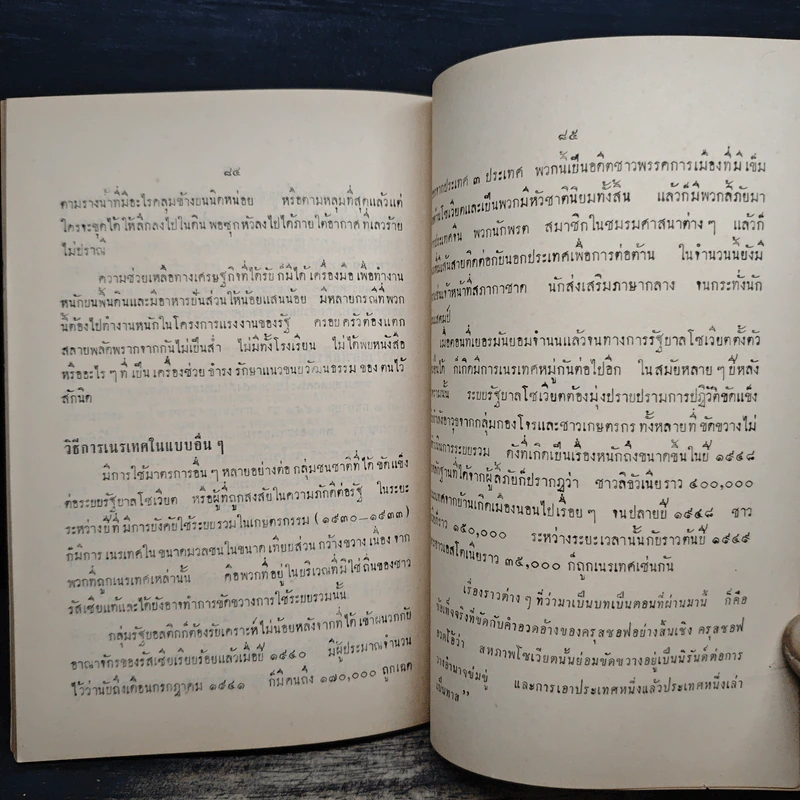 ๘๔
ตามรางน้ำที่มีอะไรคลุมข้างบนนิดหน่อย หรือตามหลุมที่สุดแล้วแต่
ใครจะขุดได้ ให้ลึกลงไปในดิน พอซุกหัวลงไปได้ภายใต้อากาศ ที่เลวร้าย
ไม่ปราณี
ความช่วยเหลือทางเศรษฐกิจที่ได้รับ ก็มีได้ เครื่องมือ เพื่อทำงาน
หนักบนพื้นดินและมีอาหารปันส่วนให้น้อยแสนน้อย มีหลายกรณีที่พวก
นี้ต้องไปทำงานหนักในโครงการแรงงานของรัฐ ครอบครัวต้องแตก
สลายพลัดพรากจากกันไม่เป็นส่ำ ไม่มีทั้งโรงเรียน ไม่ได้พบหนังสือ
หรืออะไร ๆ ที่ เป็น เครื่องช่วย ธำรง รักษาแนวขนบวัฒนธรรม ของ ตนไว้
สักนิด
วิธีการเนรเทศในแบบอื่น ๆ
มีการใช้มาตรการอื่น ๆ หลายอย่างต่อ กลุ่มชนชาติที่ได้ ขัดแย้ง
ต่อระบบรัฐบาลโซเวียต หรือผู้ที่ถูกสงสัยในความภักดีต่อรัฐ ในระยะ
ระหว่างปีที่ มีการบังคับใช้ระบบรวมในเกษตรกรรม (๑๙๓๐—๑๙๓๓)
ก็มีการ เนรเทศใน ขนาดมวลชนในขนาด เทียบส่วน กว้างขวาง เนื่อง จาก
พวกที่ถูกเนรเทศเหล่านั้น คือพวกที่อยู่ ในบริเวณที่มิใช่ถิ่นของชาว
รัสเซียแท้และได้บังอาจทำการขัดขวางการใช้ระบบรวมนั้น
กลุ่มรัฐบอลติกก็ต้องรับเคราะห์ไม่น้อยหลังจากที่ได้ เข้าผนวกกับ
อาณาจักรของรัสเซียเรียบร้อยแล้วเมื่อปี ๑๙๔๐ มีผู้ประมาณจำนวน
ไว้ว่านับถึงเดือนกรกฎาคม ๑๙๔๑ ก็มีคนถึง ๑๗๐,๐๐๐ ถูกเฉด
๘๕
ประเทศ ๓ ประเทศ พวกนี้เป็นอดีตชาวพรรคการเมืองที่มีเข็ม
โซเวียตและเป็นพวกมีหัวชาตินิยมทั้งสิ้น แล้วก็มีพวกลี้ภัยมา
ประเทศจีน พวกนักพรต สมาชิกในชมรมศาสนาต่าง ๆ แล้วก็
สายติดต่อกับนอกประเทศเพื่อการต่อต้าน ในจำนวนนี้ยังมี
เจ้าหน้าที่สภากาชาด นักส่งเสริมภาษากลาง จนกระทั่งนัก
แสตมป์
เมื่อตอนที่เยอรมันยอมจำนนแล้วจนทางการรัฐบาลโซเวียตตั้งตัว
ได้ ก็เกิดมีการเนรเทศหมู่กันต่อไปอีก ในสมัยหลาย ๆ ปีหลัง
นั้น ระบบรัฐบาลโซเวียตต้องมุ่งปราบปรามการปฏิวัติขัดแข็ง
อาวุธจากกลุ่มกองโจรและชาวเกษตรกร ทั้งหลายที่ ขัดขวางไม่
การระบบรวม ดังที่เกิดเป็นเรื่องหนักถึงขนาดขึ้นในปี ๑๙๔๘
ฐานที่ได้จากผู้ลี้ภัยก็ปรากฏว่า ชาวลิธัวเนียราว ๔๐๐,๐๐๐
จากบ้านเกิดเมืองนอนไปเรื่อย ๆ จนปลายปี ๑๙๔๘ ชาว
ราว ๑๕๐,๐๐๐ ระหว่างระยะเวลานั้นกับราวต้นปี ๑๙๔๙
ชาวเอสโตเนียราว ๓๕,๐๐๐ ก็ถูกเนรเทศเช่นกัน
เรื่องราวต่าง ๆ ที่ว่ามาเป็นบทเป็นตอนที่ผ่านมานี้ ก็คือ
ข้อเท็จจริงที่ขัดกับคำอวดอ้างของครุสชอฟอย่างสิ้นเชิง ครุสชอฟ
อวดไว้ว่า สหภาพโซเวียตนั้นย่อมขัดขวางอยู่เป็นนิรันด์ต่อการ
วางอำนาจข่มขู่ และการเอาประเทศหนึ่งแล้วประเทศหนึ่งเล่า
เป็นทาส”